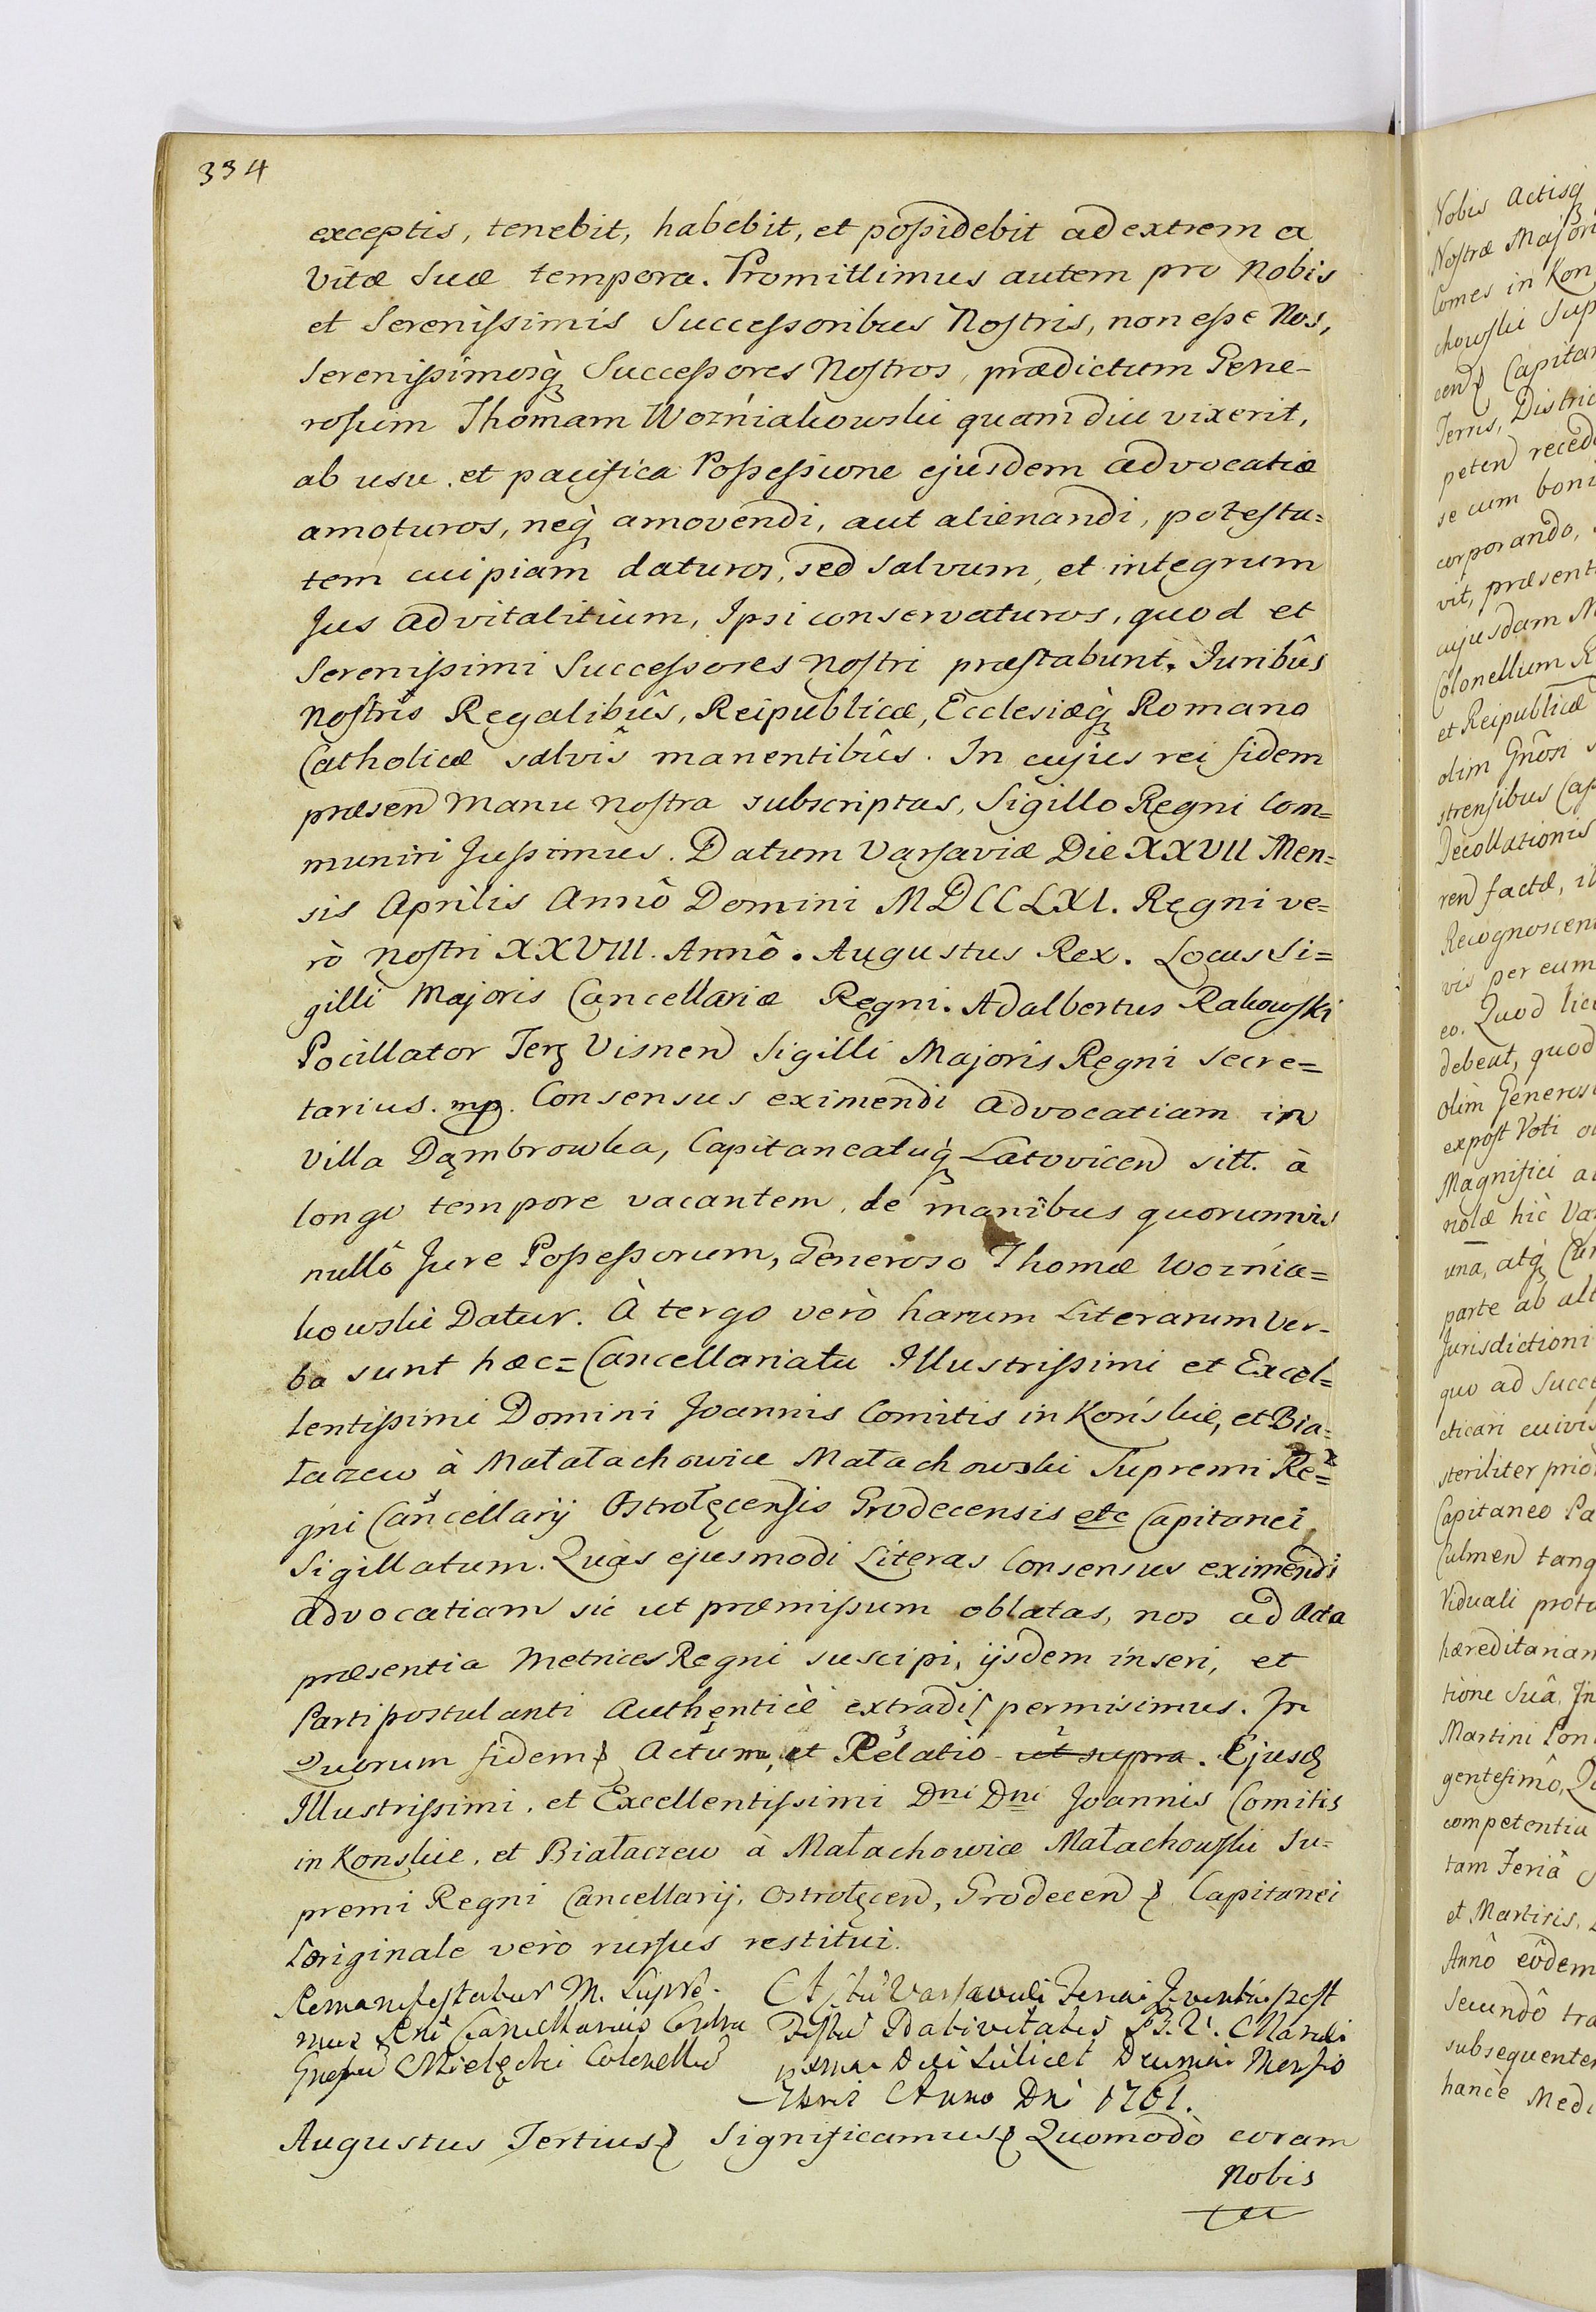 334
exceptis, tenebit, habebit, et poſsidebit ad extrema
Vitæ Suæ tempora. Promittimus autem pro Nobis
et Sereniſsimis Succeſsoribus Noſtris, non eſse Nos,
Sereniſsimosq́ Succeſsores Noſtros, prædictum Gene-
roſum Thomam Woźniakowski quamdiu vixerit,
ab usu et pacifica Poſseſsione ejusdem advocatiæ
amoturos, neq́ amovendi, aut alienandi, poteſta=
tem cuipiam daturos, sed salvum, et integrum
Jus advitalitium, Ipsi conservaturos, quod et
Sereniſsimi Succeſsores noſtri præſtabunt. Juribûs
noſtris Regalibûs, Reipublicæ, Ecclesiæq́ Romano
Catholicæ salvîs manentibûs. In cujus rei fidem
præsen manu noſtra subscriptas, Sigillo Regni Com=
muniri Juſsimus. Datum Varſaviæ Die XXVII Men=
sis Aprilis Annô Domini MDCCLXI. Regni ve=
rò noſtri XXVIII. Annô. Augustus Rex. Locus Si=
gilli Majoris Cancellariæ Regni. Adalbertus Rakowſki
Pocillator Terŗ Visnen Sigilli Majoris Regni Secre=
tarius. mp. Consensus eximendi advocatiam in
Villa Dąmbrowka, Capitaneatuq́ Latovicen sitt. à
longo tempore vacantem, de manibus quorumvis
nullô Jure Poſseſsorum, Generoso Thomæ Woźnia=
kowski Datur. À tergo verò harum Literarum Ver-
ba sunt hæc= Cancellariatu Illustriſsimi et Excel=
lentiſsimi Domini Joannis Comitis in Końskie, et Bia=
łaczew à Małałachowice Małachowski Supremi Re=
gni Cancellarij Ostrołęcenſis Grodecensis etc Capitanei
Sigillatum. Quas ejusmodi Literas Consensus eximendi
advocatiam sic ut præmiſsum oblatas, nos ad Acta
præsentia Metrices Regni suscipi, ijsdem inseri, et
Parti postulanti Authenticè extradi permisimus. In
Quorum fidem Actum, et Relatio ut supra. Ejusd
Illustriſsimi, et Excellentiſsimi Dni Dni Joannis Comitis
in Konskie, et Białaczew à Małachowice Małachowſki Su=
premi Regni Cancellarij, Ostrołęcen, Grodecen Capitanei
Originale verò rurſus restitui.
M. Supre-
mus Cancellarius
Mielęcki Colonellus
Feria post
Festum Nativitatis
Mensis
Anno Dni 1761.
Augustus Tertius Significamus Quomodò coram
Nobis
Nobis Actisq́
Noſtræ Majori
Comes in Kon
chowſki Sup
cen Capitan
Terris, Distric
peten recedi
se cum boni
corporando,
vit, præsent
cujusdam M
Colonellum R
et Reipublicæ
olim Gnôsi
strenſibus Cap
Decollationis
ren factæ,
Recognoscen
vis per eum
eo. Quod lice
debeat, quod
Olim Generos
expoſt Voti
Magnifici
nolæ hìc Var
una, atq́ Cur
parte ab alt
Jurisdictioni
quo ad Succe
cticari cuivis
steriliter prio
Capitaneo Pa
Culmen tang
Viduali prota
hæreditariam
tione Suâ. In
Martini Pon
gentesimô, Q
competentia
tam Feriâ
et Martiris,
Annô eôdem
secundô tra
subsequente
hancè Medi